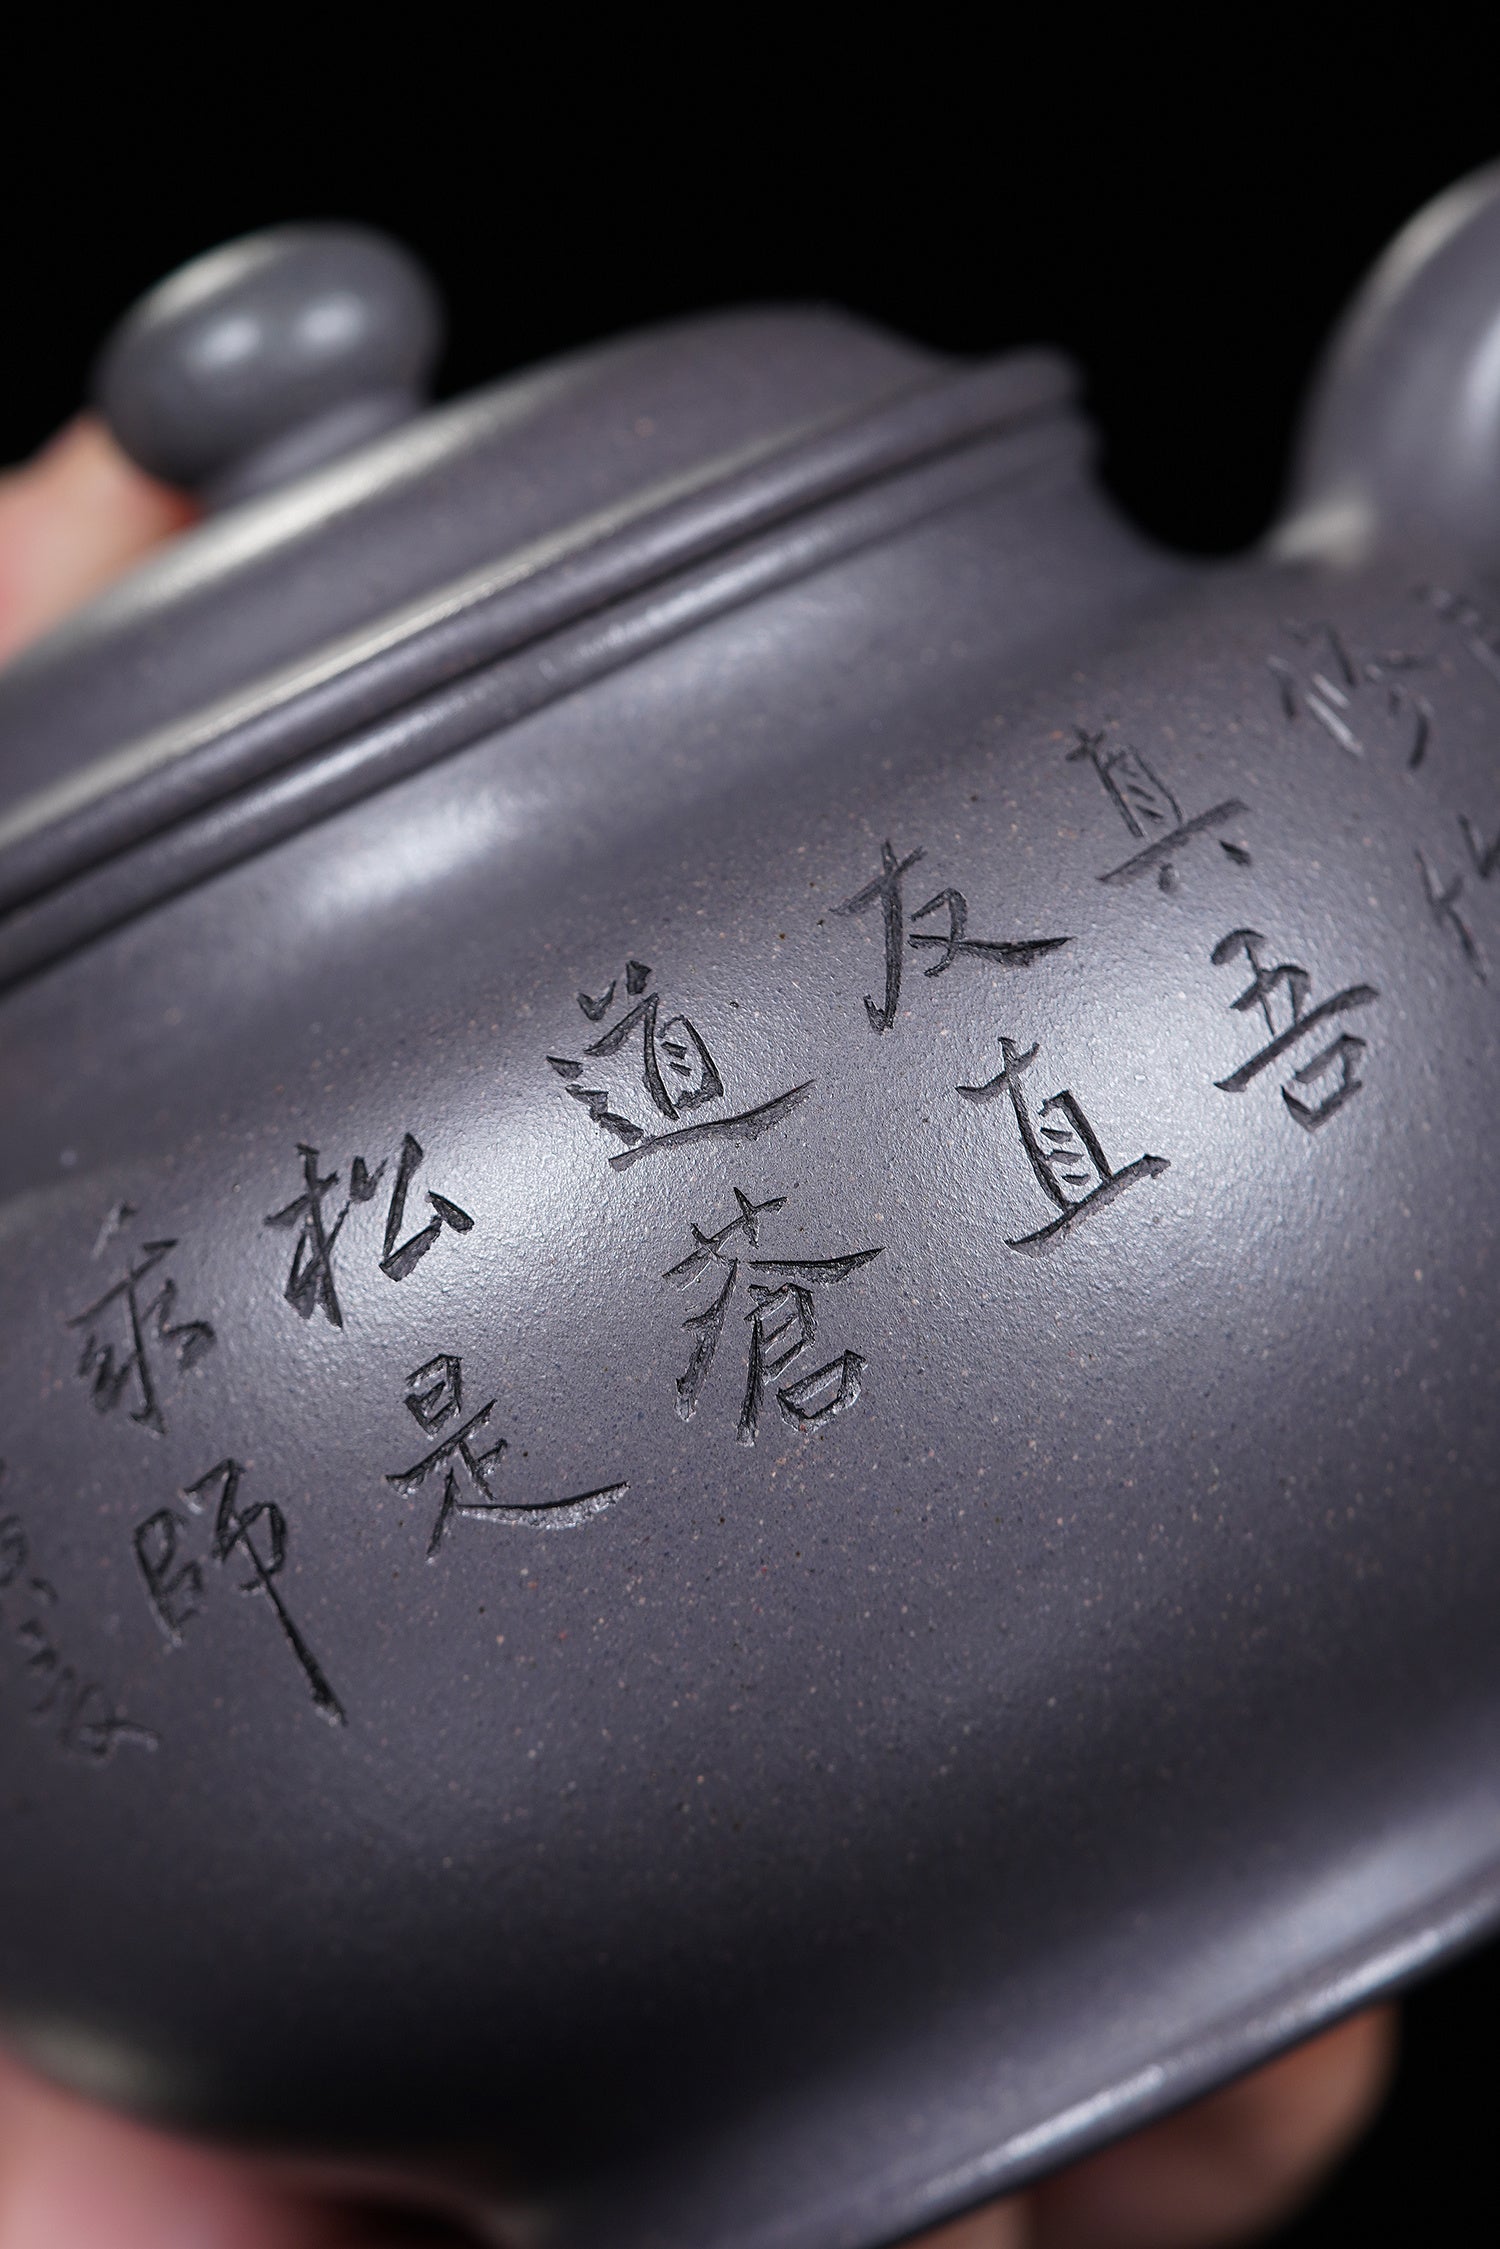 修竹
真吾
友直
道蒼
松是
師